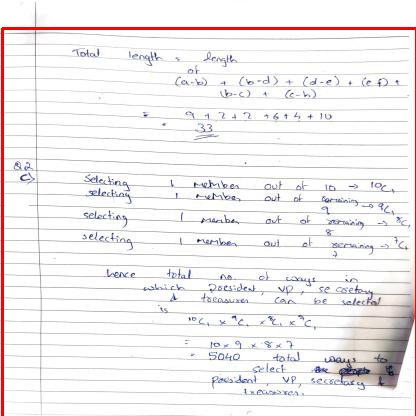 Total length = length
of
(a-b) + (b-d) + (d-e) + (e f) +
(b-c) + (c-h)
= 9 + 2 + 2 + 6 + 4 + 10
= 33
Q2
C)
Selecting 1 member out of 10 → 10C1
selecting 1 member out of remaining 9 → 9C1
selecting 1 member out of remaining 8 → 8C1
selecting 1 member out of remaining 7 → 7C1
hence total no. of ways in
which president, VP, secretary
& treasurer can be selected
is
10C1 × 9C1 × 8C1 × 7C1
= 10 × 9 × 8 × 7
= 5040 total ways to
select
president, VP, secretary &
treasurer.